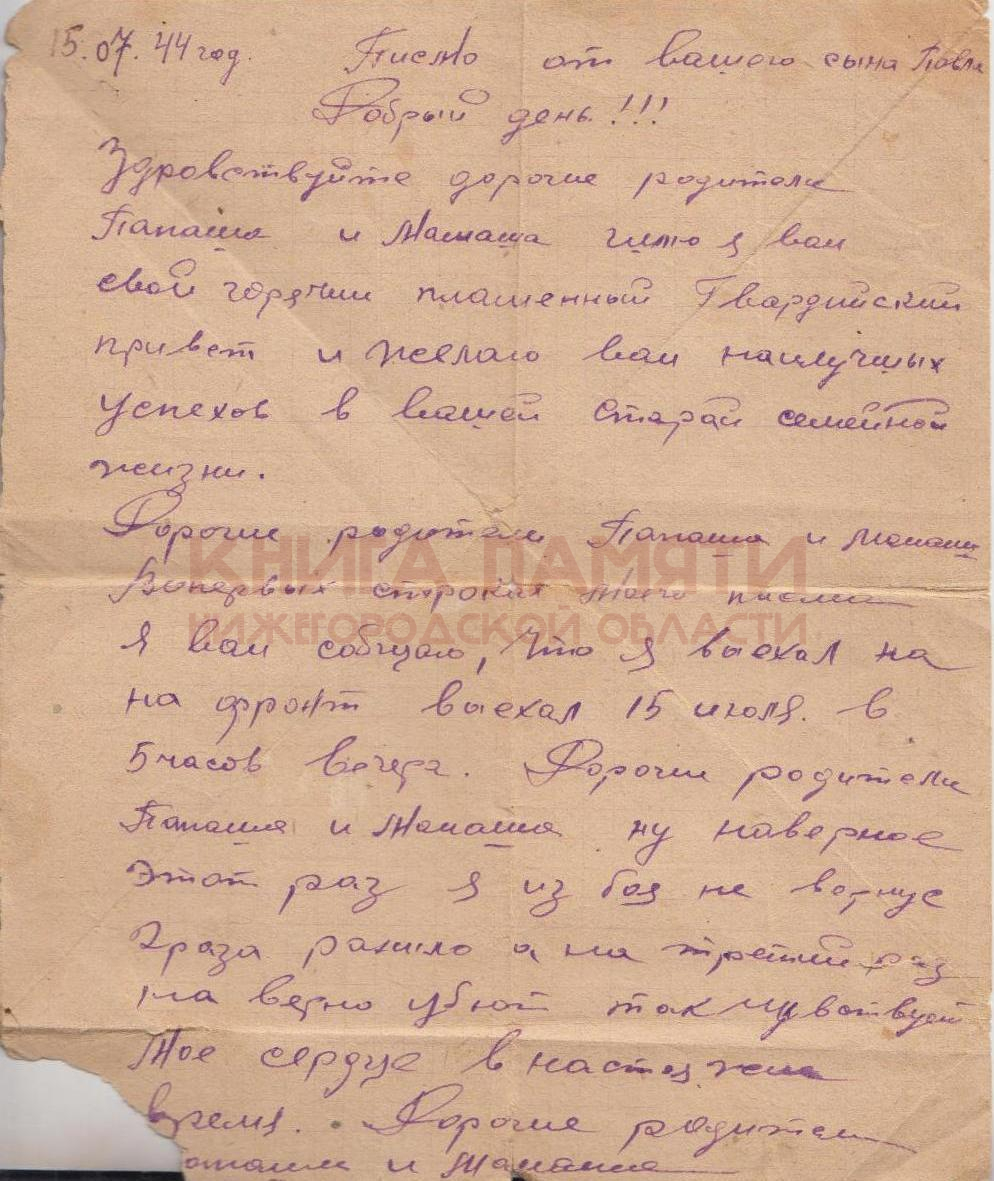 15.07.44 год. Писмо от вашего сына Павла
Добрый день!!!
Здравствуйте дорогие родители
Папаша и Мамаша шлю я вам
свой горячий пламенный Гвардийский
привет и желаю вам наилучшых
успехов в вашей старой семейной
жизни.
Дорогие родители Папаша и Мамаша
КНИГА ПАМЯТИ
Вопервых строках моего писма
НИЖЕГОРОДСКОЙ ОБЛАСТИ
я вам собщаю, что я выехал на
на фронт выехал 15 июля. в
5 часов вечера. Дорогие родители
Папаша и Мамаша ну наверное
этот раз я из боя не вернус
2 раза ранило а на третий раз
на верно убют так чувствует
Мое сердце в настояжее
время. Дорогие родители
апаша и Мамаша